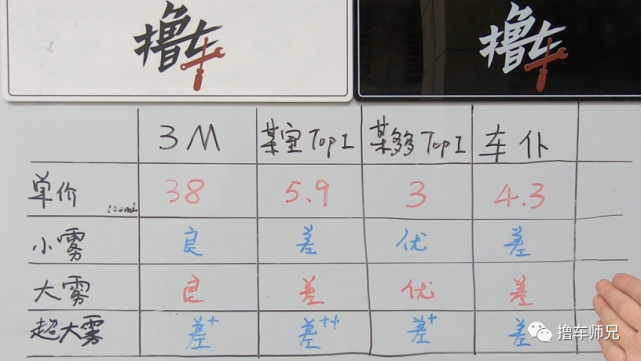 撸车
撸车
3M 某宝Top1 某多Top1 车仆
单价 :100ml 38 5.9 3 4.3
小雾 良 差 优 差
大雾 良 差 优 差
超大雾 差+ 差++ 差+ 差
撸车师兄